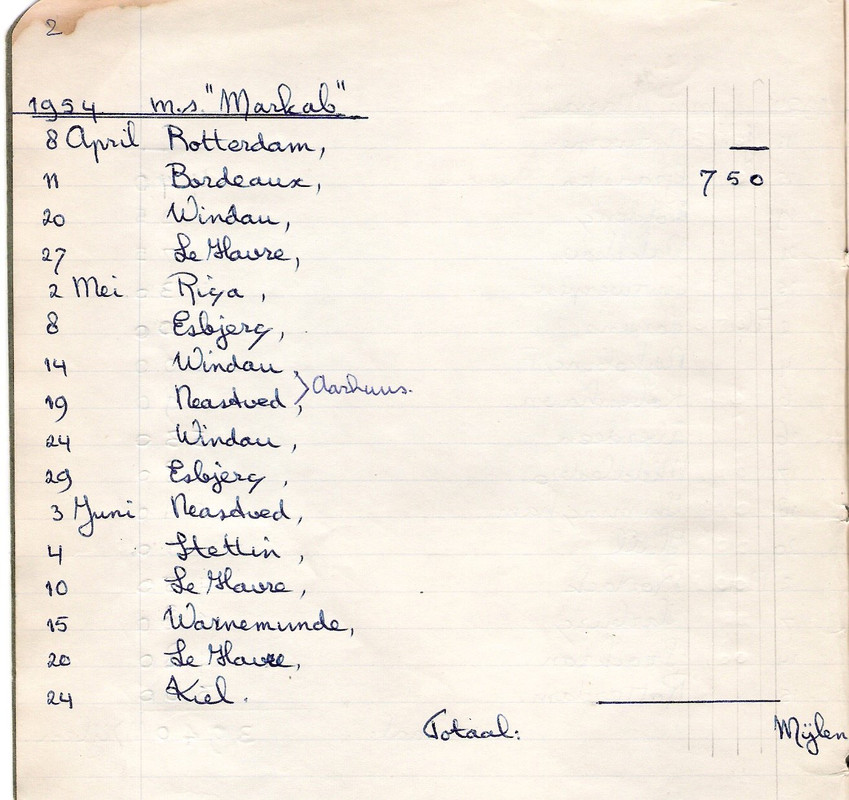 2
1954 m.s. "Markab"
8 April Rotterdam, —
11 Bordeaux, 750
20 Windau,
27 Le Havre,
2 Mei Riga,
8 Esbjerg,
14 Windau,
} Aarhuus.
19 Neastved,
24 Windau,
29 Esbjerg,
3 Juni Neastved,
4 Stettin,
10 Le Havre,
15 Warnemunde,
20 Le Havre,
24 Kiel.
Totaal: Mijlen